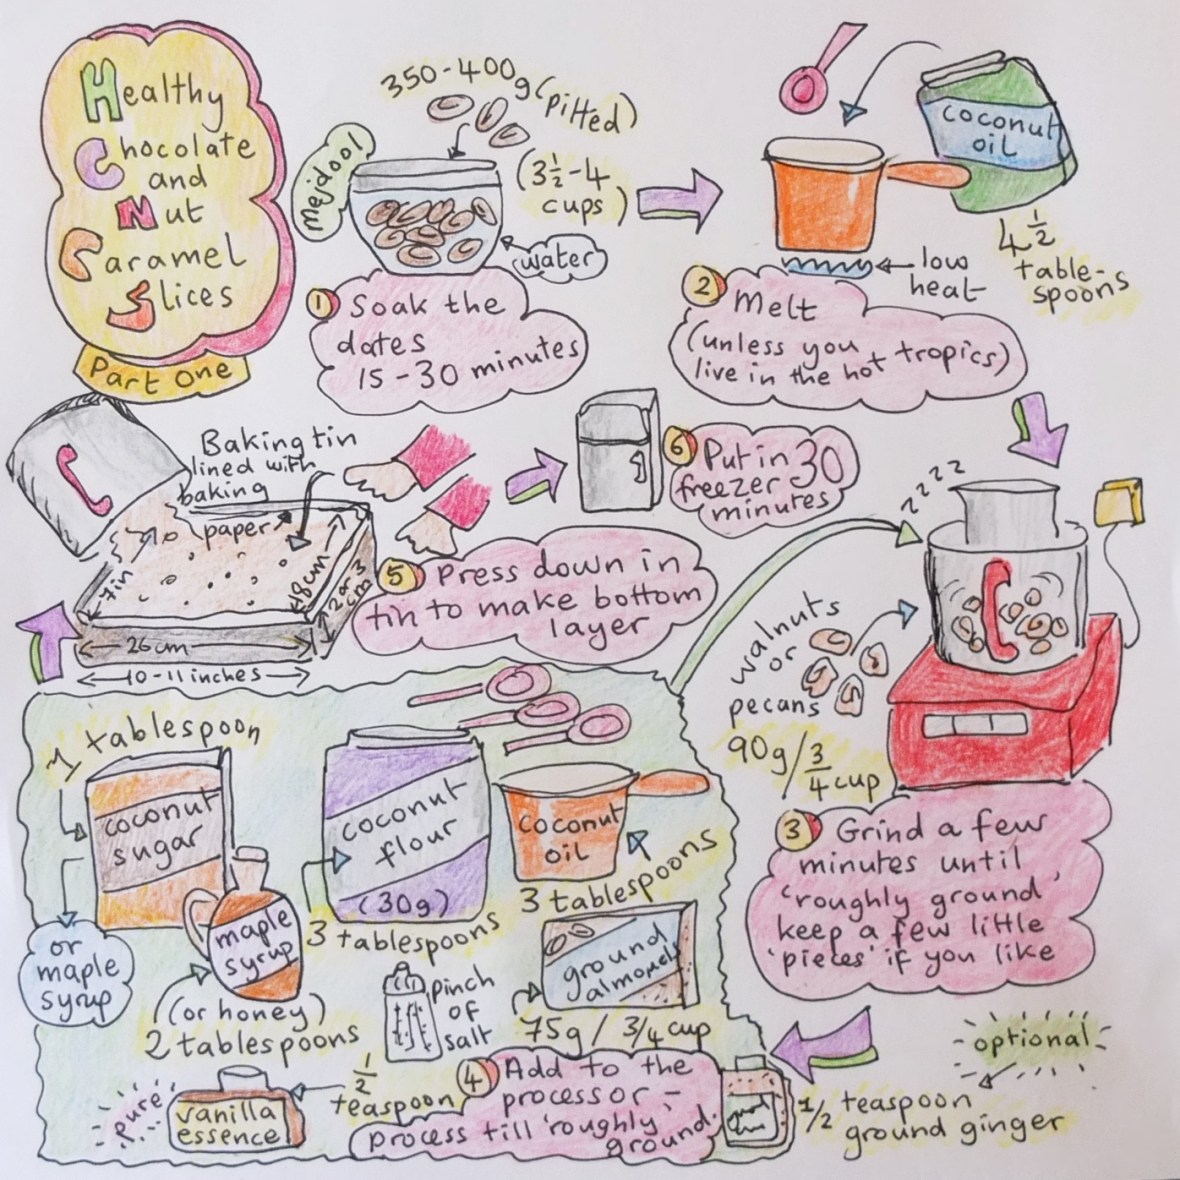 Healthy
Chocolate
and
Nut
Caramel
Slices
Part One
350-400g (pitted)
(3½-4
cups)
Mejdool
water
1 Soak the
dates
15-30 minutes
coconut
oil
4½
table-
spoons
low
heat
2 Melt
(unless you
live in the hot tropics)
zzzz
walnuts
or
pecans
90g/¾ cup
3 Grind a few
minutes until
'roughly ground'
keep a few little
'pieces' if you like
optional
½ teaspoon
ground ginger
1 tablespoon
coconut
sugar
or
maple
syrup
maple
syrup
(or honey)
2 tablespoons
coconut
flour
(30g)
3 tablespoons
coconut
oil
3 tablespoons
pinch
of
salt
ground
almonds
75g / 3/4 cup
pure
vanilla
essence
½
teaspoon
4 Add to the
processor -
process till 'roughly'
ground.
Baking tin
lined with
baking
paper
7in
18cm
2 or 3
cm
26cm
10-11 inches
5 Press down in
tin to make bottom
layer
6 Put in 30
freezer
minutes